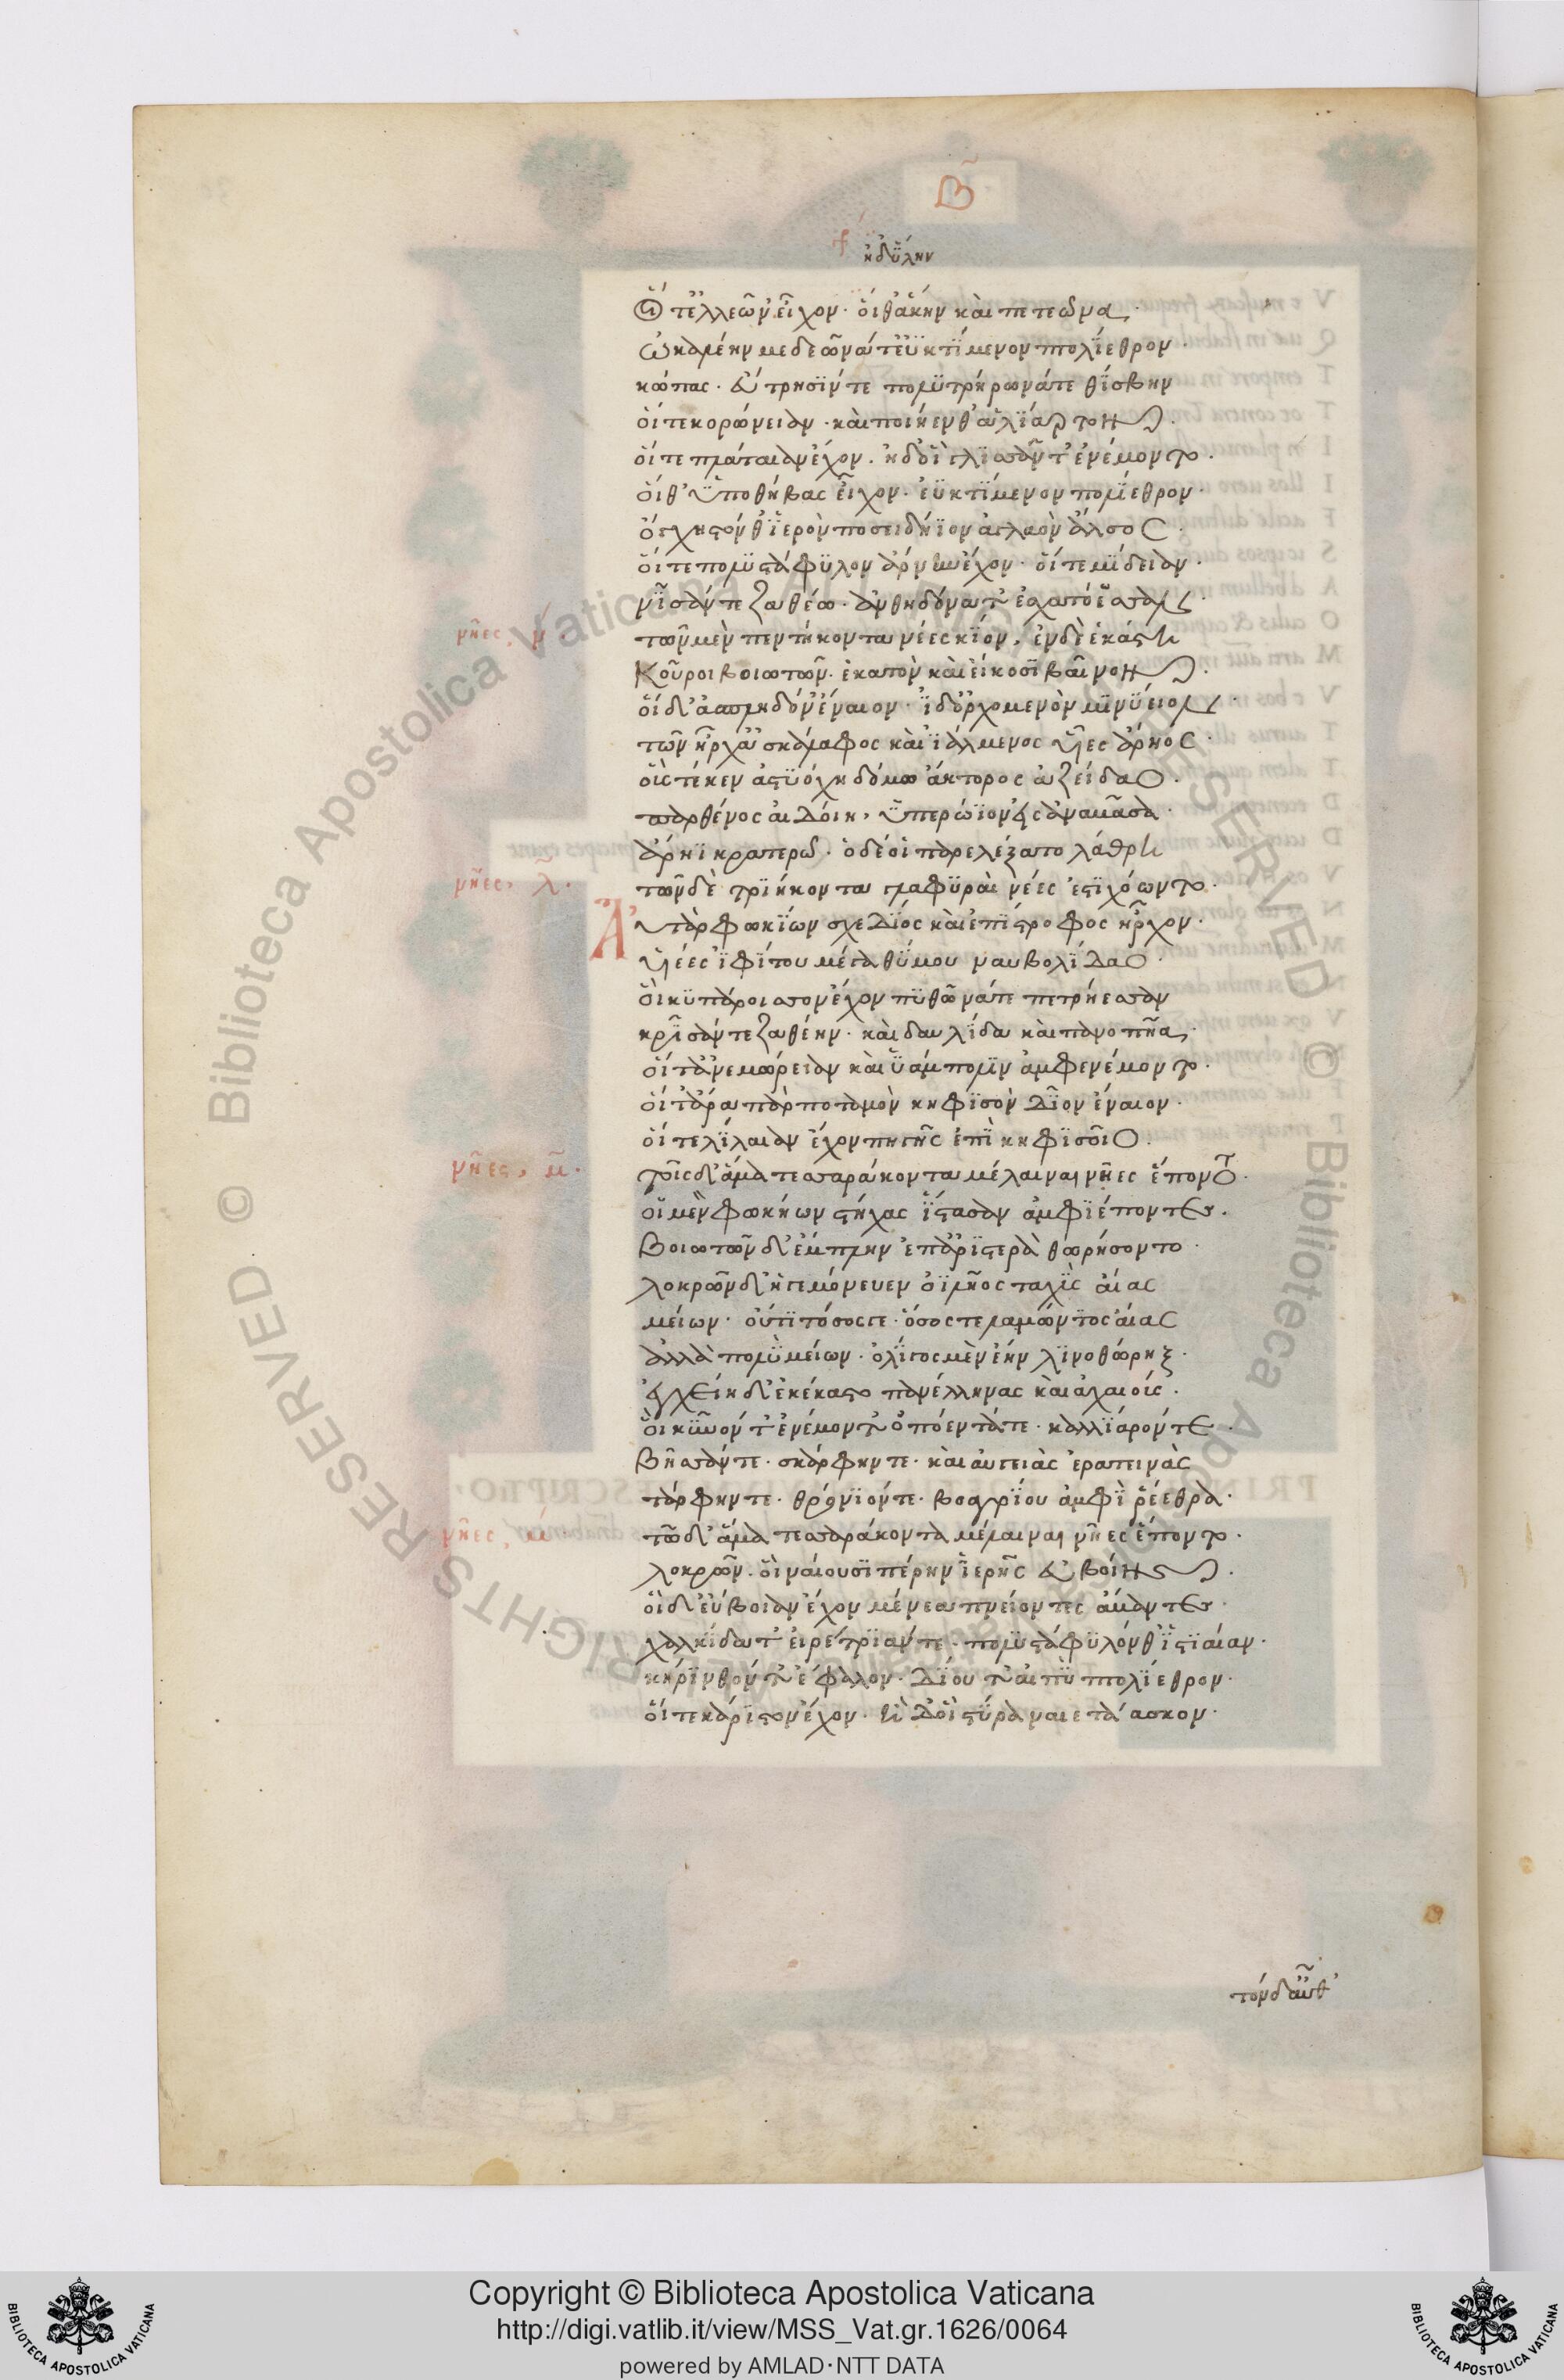 Β
ἠδ' ὕλην
Οἵ τ' ἐλλεῶν' εἶχον. οἵ θ' ἄκην καὶ πετεῶνα.
ὠκαλέην μεδεῶνά τ' ἐϋκτίμενον πτολίεθρον.
κώπας. εὔτρησίν τε πολυτρήρωνά τε θίσβην
οἵ τε κορώνειαν. καὶ ποιήενθ' ἁλίαρτον.
οἵ τε πλάταιαν ἔχον. ἠδ' οἳ γλίσαντ' ἐνέμοντο.
οἵ θ' ὑποθήβας εἶχον. ἐϋκτίμενον πτολίεθρον.
ὀγχηστόν θ' ἱερὸν ποσειδήϊον ἀγλαὸν ἄλσος.
οἵ τε πολυστάφυλον ἄρνην ἔχον. οἵ τε μίδειαν.
νῖσάν τε ζαθέω. ἀνθηδόνα τ' ἐσχατόεσσαν.
νῆες, ν.
τῶν μὲν πεντήκοντα νέες κίον. ἐν δὲ ἑκάστη
Κοῦροι βοιωτῶν. ἑκατὸν καὶ εἴκοσι βαῖνον.
οἳ δ' ἀσπληδόν' ἔναιον. ἰδ' ὀρχομενὸν μινύειον.
τῶν ἦρχ' ἀσκάλαφος καὶ ἰάλμενος υἷες ἄρηος.
οὓς τέκεν ἀστυόχη δόμω ἄκτορος ἀζείδαο.
παρθένος αἰδοίη, ὑπερώϊον εἰσαναβᾶσα.
ἄρηϊ κρατερῶ. ὁ δέ οἱ παρελέξατο λάθρη
νῆες, λ.
τῶν δὲ τριήκοντα γλαφυραὶ νέες ἐστιχόωντο.
Αὐτὰρ φωκίων σχεδίος καὶ ἐπίστροφος ἦρχον.
υἱέες ἰφίτου μεγαθύμου ναυβολίδαο.
οἳ κυπάρισσον ἔχον πυθῶνά τε πετρήεσσαν
κρῖσάν τε ζαθέην. καὶ δαυλίδα καὶ πανοπῆα.
οἵ τ' ἀνεμώρειαν καὶ ὑάμπολιν ἀμφενέμοντο.
οἵ τ' ἄρα πὰρ ποταμὸν κηφισὸν δῖον ἔναιον.
οἵ τε λίλαιαν ἔχον πηγῆς ἐπὶ κηφισοῖο.
νῆες, μ.
τοῖς δ' ἅμα τεσσαράκοντα μέλαιναι νῆες ἕποντο.
οἳ μὲν φωκήων στίχας ἵστασαν ἀμφιέποντες.
Βοιωτῶν δ' ἔμπλην ἐπ' ἀριστερὰ θωρήσοντο.
λοκρῶν δ' ἡγεμόνευεν ὀϊλῆος ταχὺς αἴας
μείων. οὔτι τόσος γε. ὅσος τελαμώνιος αἴας
ἀλλὰ πολὺ μείων. ὀλίγος μὲν ἔην λινοθώρηξ.
ἐγχείη δ' ἐκέκαστο πανέλληνας καὶ ἀχαιούς.
οἳ κῦνόν τ' ἐνέμοντ' ὀπόεντά τε. καλλίαρόν τε.
Βῆσσάν τε. σκάρφην τε. καὶ αὐγειὰς ἐρατεινὰς
τάρφην τε. θρόνιόν τε. βοαγρίου ἀμφὶ ῥέεθρα.
νῆες, μ
τῶ δ' ἅμα τεσσαράκοντα μέλαιναι νῆες ἕποντο.
λοκρῶν. οἳ ναίουσι πέρην ἱερῆς εὐβοίης.
οἳ δ' εὔβοιαν ἔχον μένεα πνείοντες ἄβαντες.
χαλκίδα τ' εἰρέτριάν τε. πολυστάφυλόν θ' ἱστίαιαν.
κήρινθόν τ' ἔφαλον. δίου τ' αἰπὺ πτολίεθρον.
οἵ τε κάριστον ἔχον. ἠδ' οἳ στύρα ναιετάασκον.
τόνδ' αὖθ'
Copyright © Biblioteca Apostolica Vaticana
http://digi.vatlib.it/view/MSS_Vat.gr.1626/0064
powered by AMLAD·NTT DATA